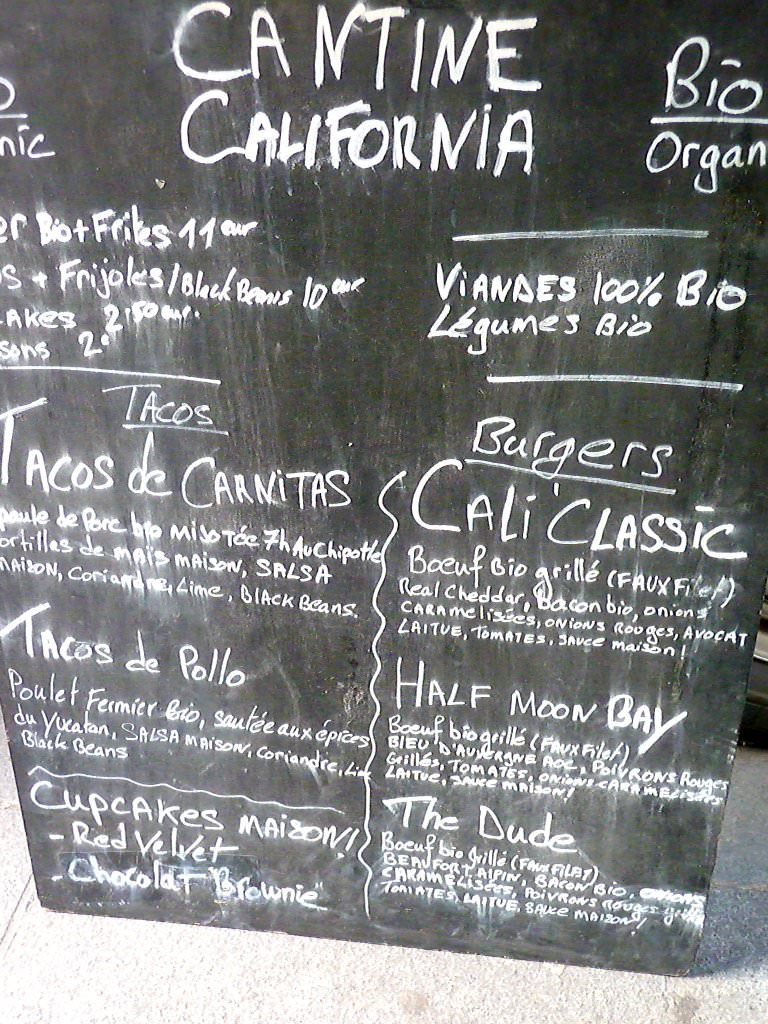 CANTINE
CALIFORNIA
Bio
Organ
nic
er Bio + Frites 11 eur
os + Frijoles / Black Beans 10 eur
CAKES 2,50 eur.
sons 2e
VIANDES 100% Bio
Légumes Bio
TACOS
TACOS de CARNITAS
paule de Porc bio MIJOTée 7h Au Chipotle
ortilles de maïs MAISON, SALSA
MAISON, Coriandre, Lime, BLACK Beans.
TACOS de Pollo
Poulet Fermier Bio, sautée aux épices
du Yucatan, SALSA MAISON, Coriandre, Lim
Black Beans
CUPCAKES MAISON!
- Red Velvet
- Chocolat "Brownie"
Burgers
CALI'CLASSIC
Bœuf Bio grillé (FAUX Filet)
Real Cheddar, Bacon bio, onions
CARAMELISées, onions Rouges, AVOCAT
LAITUE, Tomates, Sauce maison!
HALF MOON BAY
Bœuf bio grillé (FAUX Filet)
BIEU D'AUVERGNE AOC, POIVRONS Rouges
Grillés, TOMATES, onions CARAMELISées
LAITUE, SAUCE maison!
The Dude
Bœuf bio grillé (FAUX FILET)
BEAUFORT ALPIN, BACON Bio, onions
CARAMELISées, POIVRONS Rouges
TOMATES, LAITUE, SAUCE MAISON!